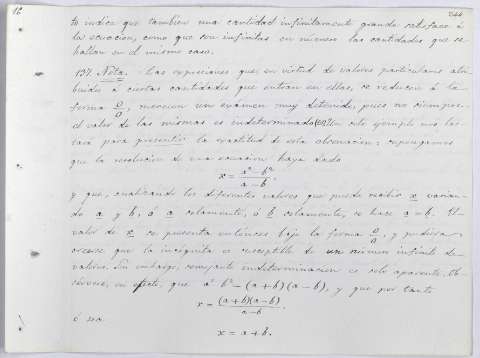 12
244
to indica que tambien una cantidad infinitamente grande satisface á
la ecuacion, como que son infinitas en número las cantidades que se
hallan en el mismo caso.
137. Nota. - Las expresiones que, en virtud de valores particulares atri-
buidos á ciertas cantidades que entran en ellas, se reducen á la
forma 0/0, merecen un exámen muy detenido, pues no siempre
el valor de las mismas es indeterminado. Un solo ejemplo nos bas-
tará para presentir la exactitud de esta observacion: supongamos
que la resolucion de una ecuacion haya dado
x = a² - b² / a - b.
y que, analizando los diferentes valores que puede recibir x varian-
do a y b, ó a solamente, ó b solamente, se hace a = b. El
valor de x se presenta entónces bajo la forma 0/0, y pudiera
creerse que la incógnita es susceptible de un número infinito de
valores. Sin embargo, semejante indeterminacion es solo aparente. Ob-
sérvese, en efecto, que a² - b² = (a + b)(a - b), y que por tanto
x = (a + b)(a - b) / a - b.
ó sea
x = a + b.